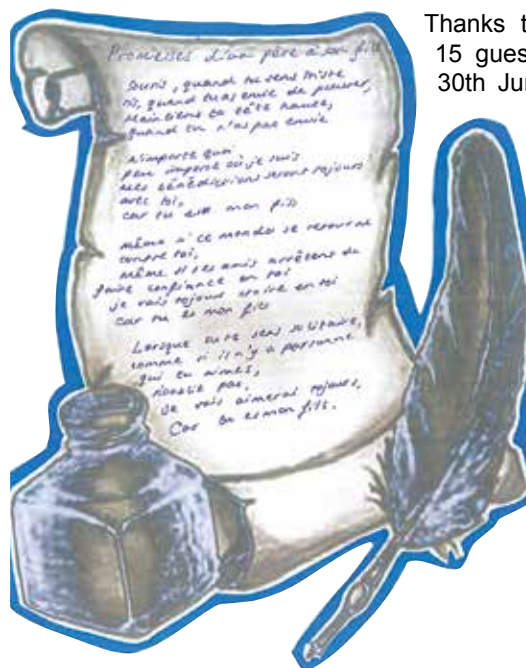 Promesses d'un père à son fils
Souris, quand tu sens triste
ris, quand tu as envie de pleurer,
Maintiens ta tête haute,
quand tu n'as pas envie
N'importe quoi
peu importe où je suis
mes bénédictions seront toujours
avec toi,
car tu est mon fils
même si ce monde se retourne
contre toi,
même si tes amis arrêtent de
faire confiance en toi
je vais tojours croire en toi
car tu es mon fils
Lorsque tu te sens solitaire,
comme si il n'y a personne
qui tu aimes,
n'oublie pas,
je vais aimerai tojours,
Car tu es mon fils.
Thanks
15
30th